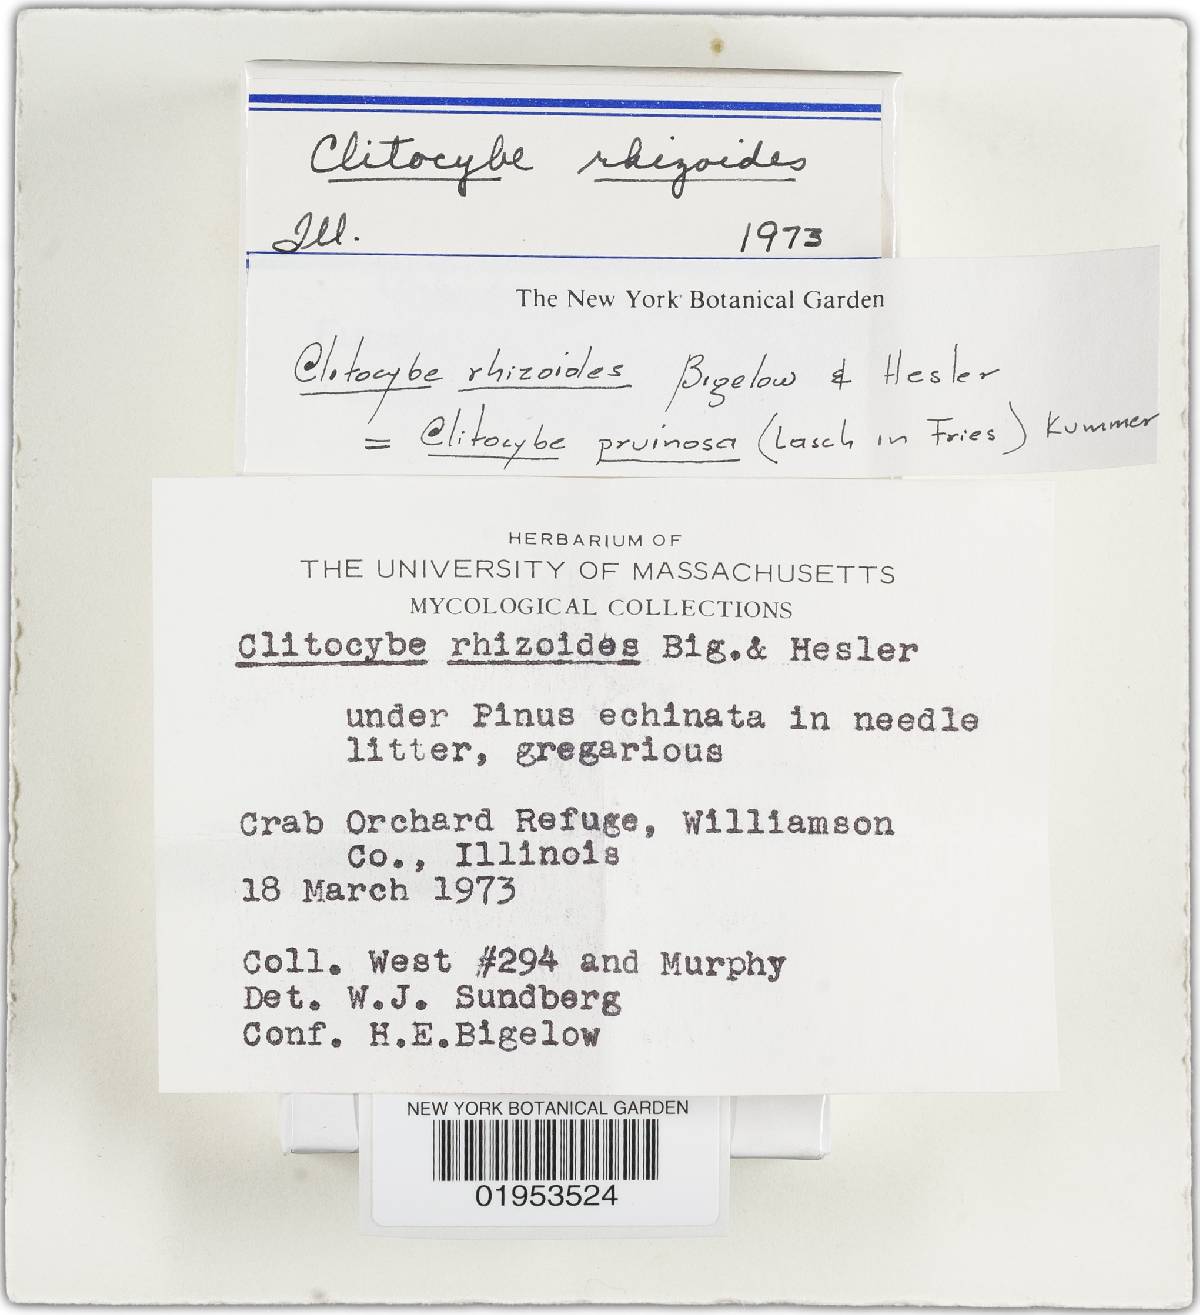 Clitocybe rhizoides
Ill. 1973
The New York Botanical Garden
Clitocybe rhizoides Bigelow & Hesler
= Clitocybe pruinosa (Lasch in Fries) Kummer
HERBARIUM OF
THE UNIVERSITY OF MASSACHUSETTS
MYCOLOGICAL COLLECTIONS
Clitocybe rhizoides Big.& Hesler
under Pinus echinata in needle
litter, gregarious
Crab Orchard Refuge, Williamson
Co., Illinois
18 March 1973
Coll. West #294 and Murphy
Det. W.J. Sundberg
Conf. H.E.Bigelow
NEW YORK BOTANICAL GARDEN
01953524